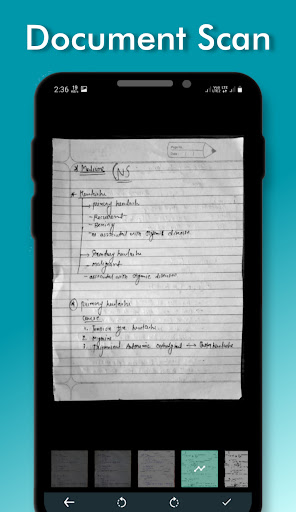 Document Scan
2:36
Page No.
Date
Medicine CNS
Headache
→ primary headache
- Recurrent
- Benign
- no associated with organic disease
→ Secondary headache
- malignant
- associated with organic disease
Primary headache
1. Tension type headache
2. migraine
3. Trigeminal Autonomic →